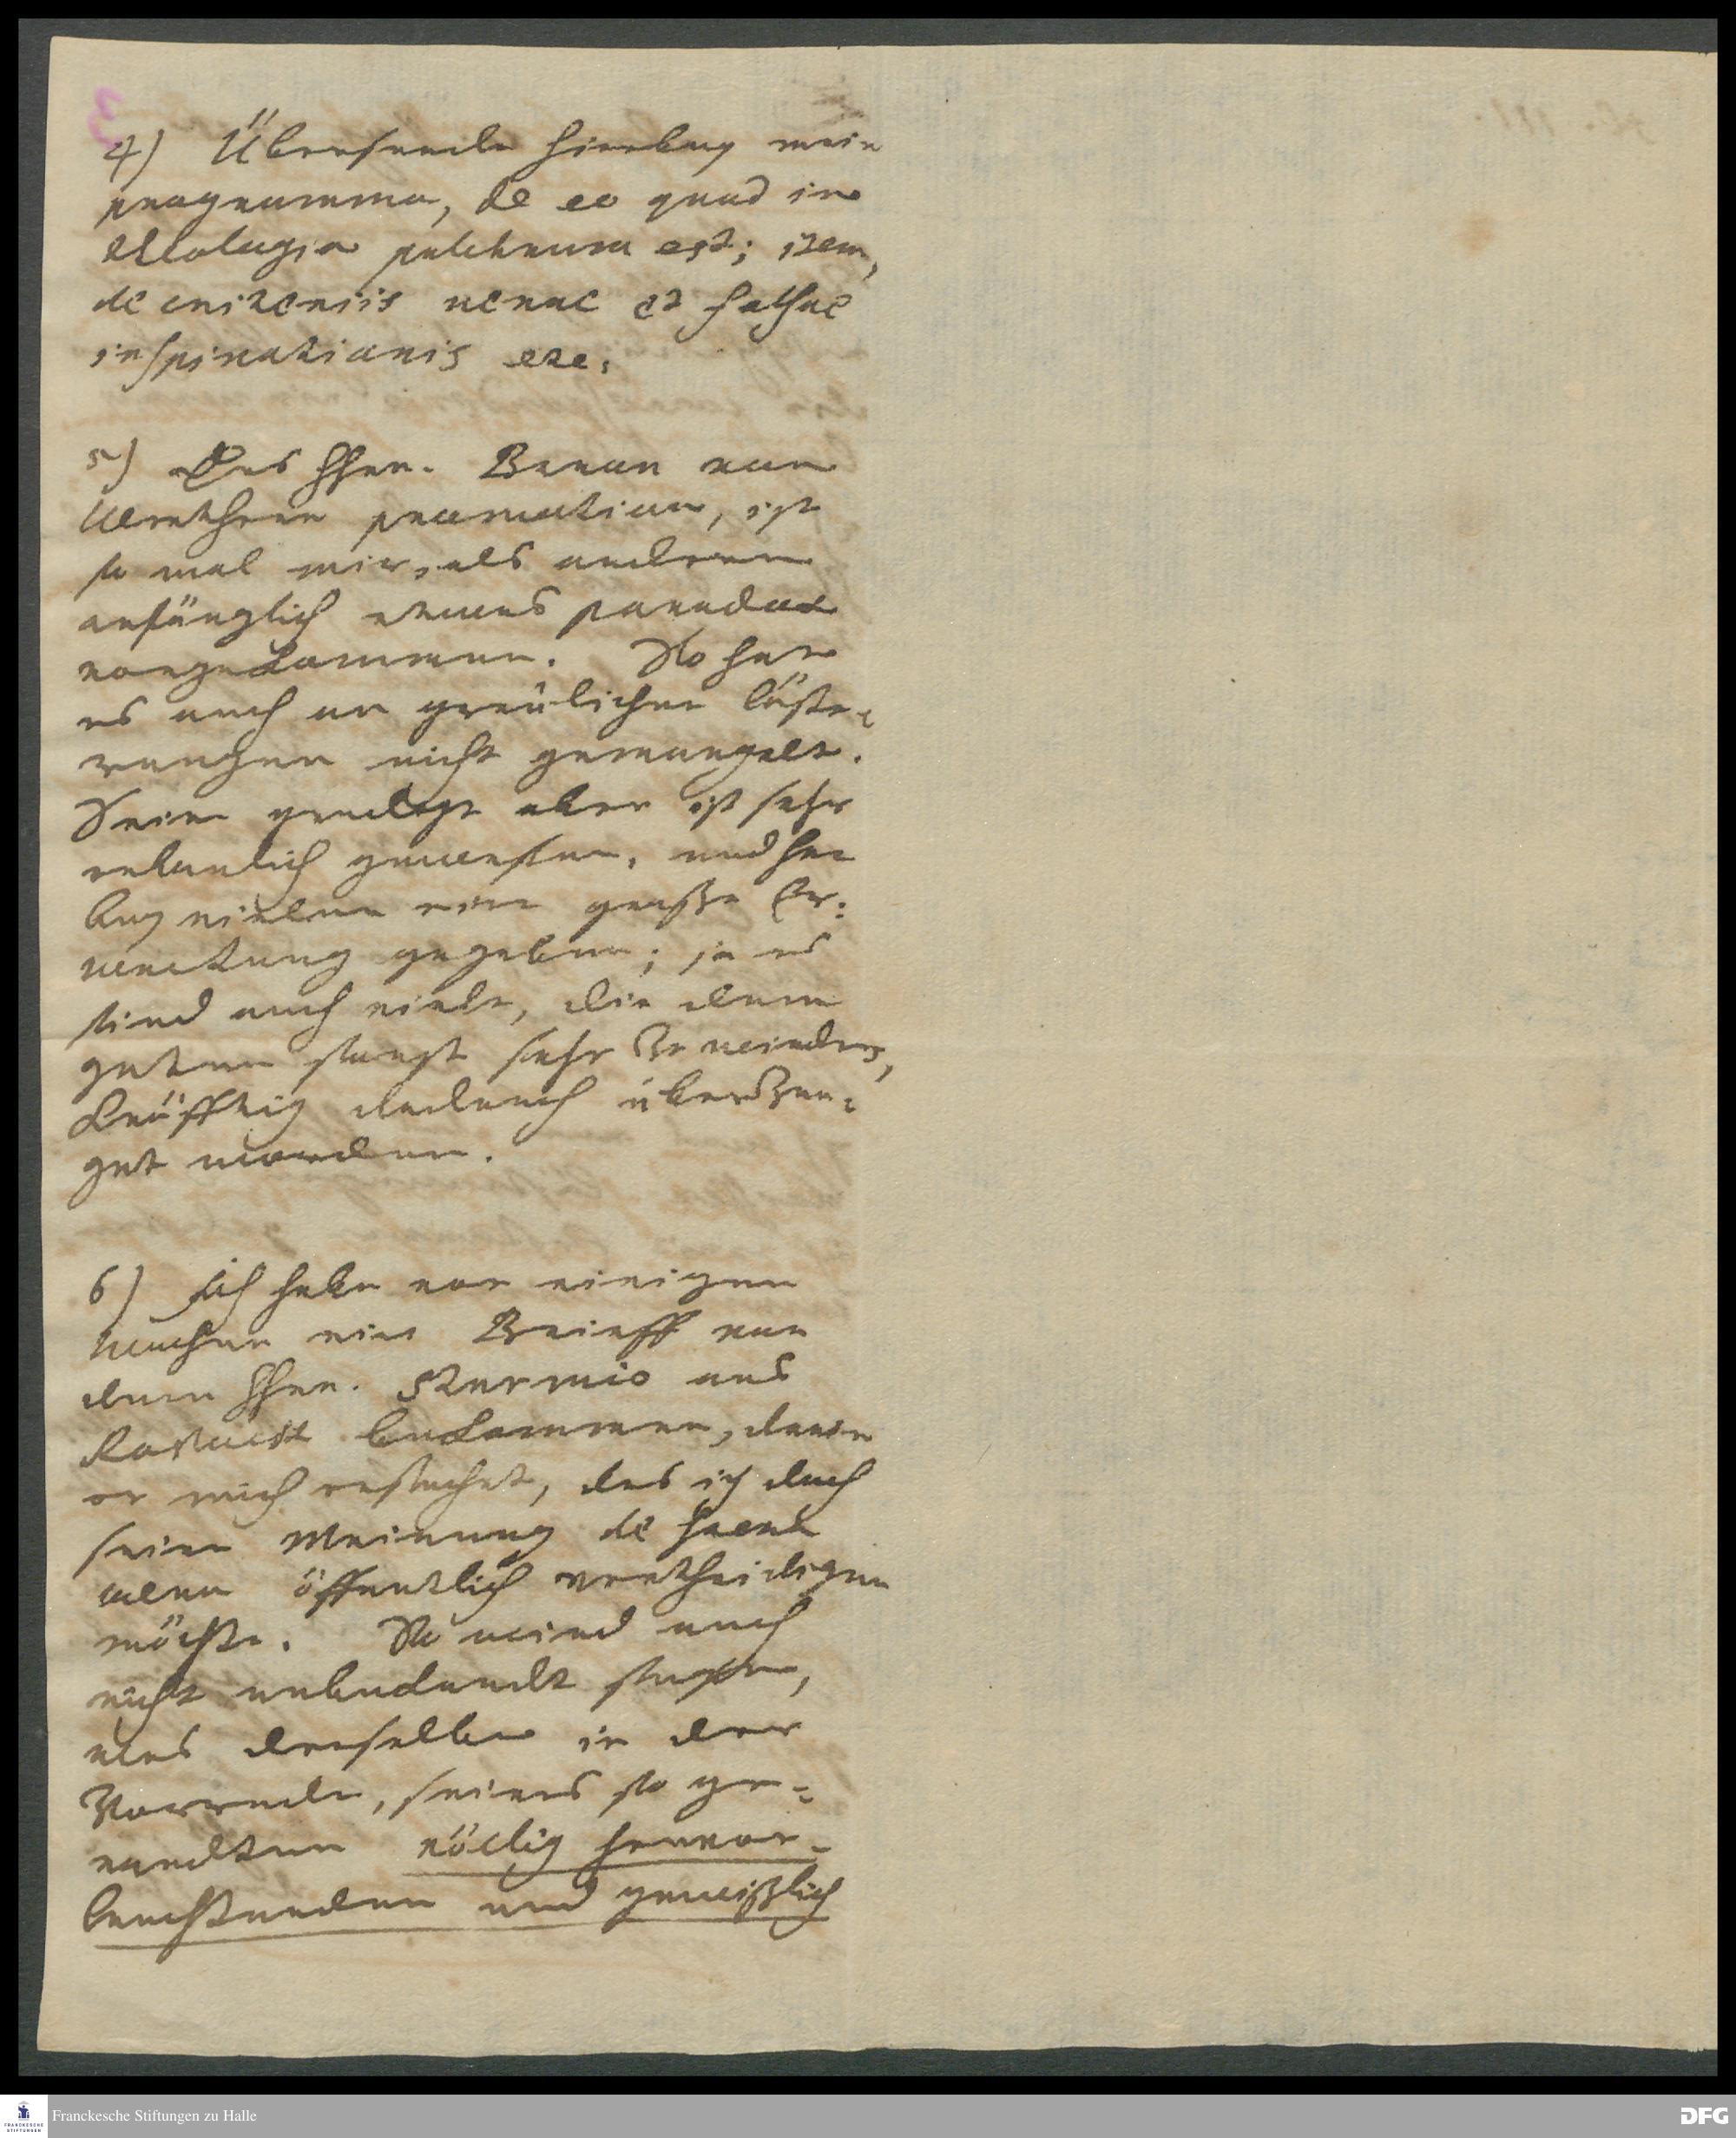 4) Übersende hierbey mein
programma, de eo quod in
theologia pulchrum est; item,
de criteriis verae et falsae
inspirationis etc.
5) Des Hhrn. Baron von
Werthern promotion, ist
so wol mir, als anderen
anfänglich etwas paradox
vorgekommen. So hat
es auch an greülichen läste-
rungen nicht gemangelt.
Seine predigt aber ist sehr
erbaulich gewesen, und hat
bey vielen eine große Er-
weckung gegeben; ja es
sind auch viele, die dem
guten sonst sehr zu wieder,
kräfftig dadurch überzeu-
get worden.
6) Ich habe vor einigen
Wochen ein Brieff von
dem Hhrn. Sturmio aus
bekommen, darin
er mich ersuchet, das ich doch
seine Meinung de
öffentlich vertheidigen
möchte. So wird auch
nicht unbekandt seyn,
was derselbe in der
Vorrede, seines so ge-
nandten völlig hervor-
leuchtenden und gewißlich
Franckesche Stiftungen zu Halle
DFG